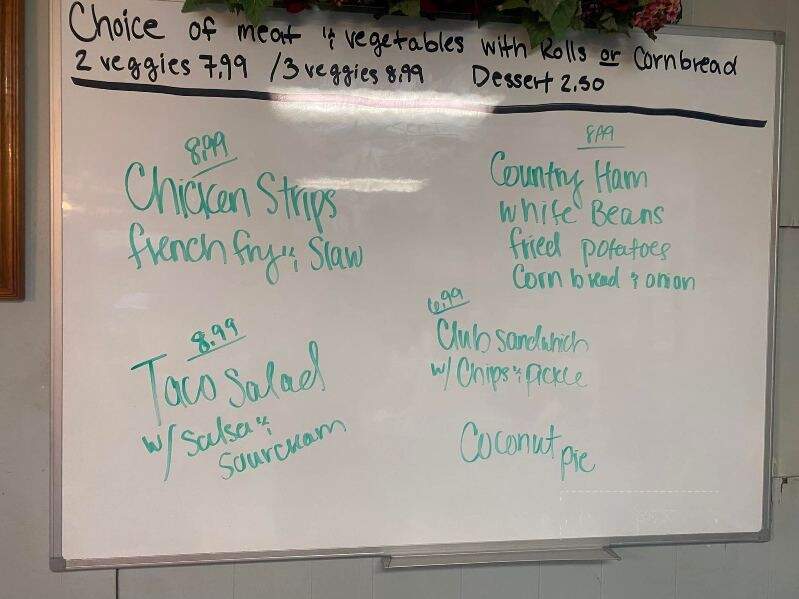 Choice of meat & vegetables with Rolls or Cornbread
2 veggies 7.99 / 3 veggies 8.99 Dessert 2.50
8.99
Chicken Strips
french fry & Slaw
8.99
Country Ham
White Beans
fried potatoes
Corn bread & onion
8.99
Taco Salad
w/ Salsa &
Sourcream
6.99
Club sandwhich
w/ Chips & pickle
Coconut pie